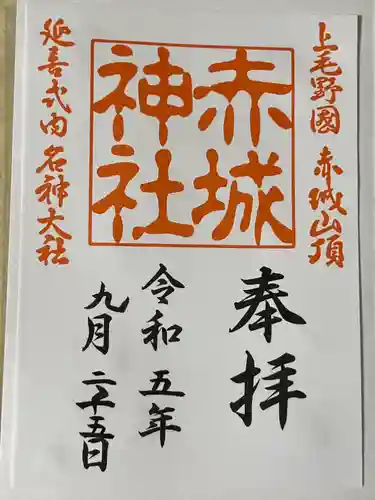 上毛野國 赤城山頂
赤城
神社
延喜式内 名神大社
奉拝
令和五年
九月二十五日